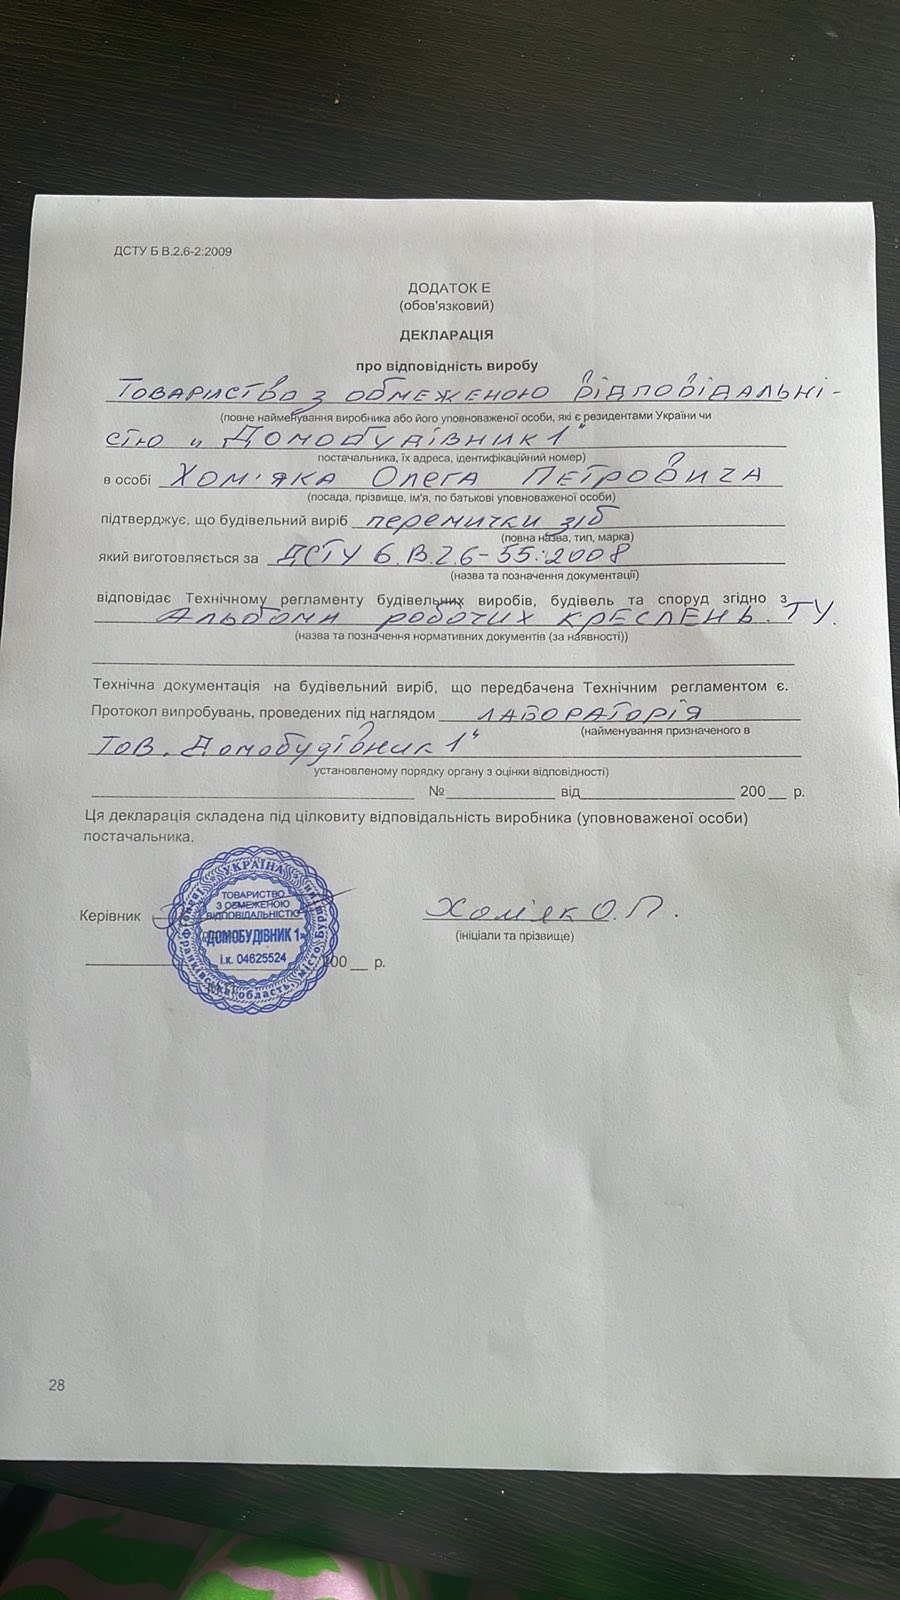 ДСТУ Б В.2.6-2:2009
ДОДАТОК Е
(обов'язковий)
ДЕКЛАРАЦІЯ
про відповідність виробу
Товариство з обмеженою відповідальні-
(повне найменування виробника або його уповноваженої особи, які є резидентами України чи
стю „Домобудівник 1"
постачальника, їх адреса, ідентифікаційний номер)
в особі Хом'яка Олега Петровича
(посада, прізвище, ім'я, по батькові уповноваженої особи)
підтверджує, що будівельний виріб перемички з/б
(повна назва, тип, марка)
який виготовляється за ДСТУ Б.В.2.6-55:2008
(назва та позначення документації)
відповідає Технічному регламенту будівельних виробів, будівель та споруд згідно з
Альбоми робочих креслень. ТУ.
(назва та позначення нормативних документів (за наявності))
Технічна документація на будівельний виріб, що передбачена Технічним регламентом є.
Протокол випробувань, проведених під наглядом лабораторія
(найменування призначеного в
ТОВ „Домобудівник 1"
установленому порядку органу з оцінки відповідності)
№ від 200 р.
Ця декларація складена під цілковиту відповідальність виробника (уповноваженої особи)
постачальника.
УКРАЇНА
ТОВАРИСТВО
З ОБМЕЖЕНОЮ
ВІДПОВІДАЛЬНІСТЮ
«ДОМОБУДІВНИК 1»
і.к. 04625524
Керівник Хом'як О.П.
(ініціали та прізвище)
200 р.
28